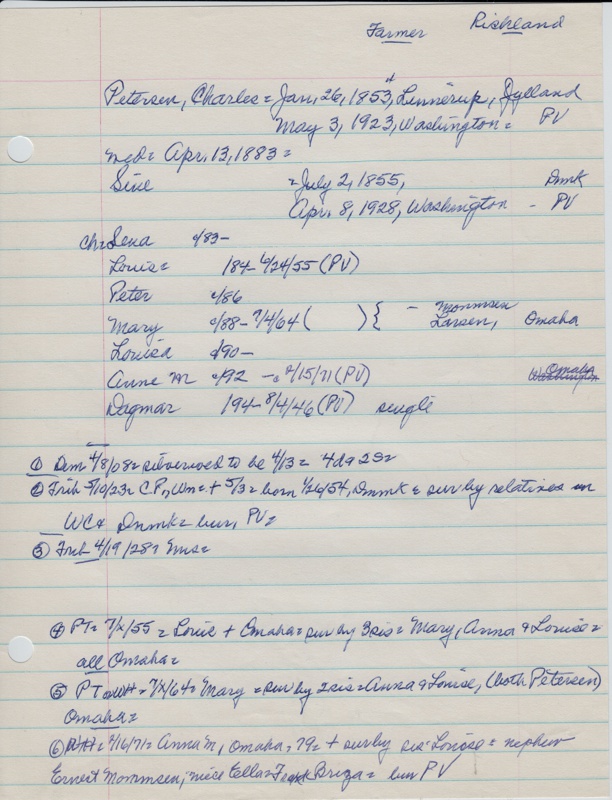 Farmer Richland
Petersen, Charles = Jan, 26, 1853, Linnerup, Jylland
May 3, 1923, Washington = PV
wed = Apr. 13, 1883 =
Sine = July 2, 1855, Dnmk
Apr. 8, 1928, Washington - PV
ch = Lena c/83 -
Louis = 184 - 6/24/55 (PV)
Peter c/86
Mary c/88 - 7/4/64 ( ) { - Mommsen Larsen, Omaha
Louisa c/90 -
Anne M c/92 - 9/15/71 (PV) Omaha Washington
Dagmar 194 - 8/4/46 (PV) single
① Dem 4/8/08 = silverwed to be 4/13 = 4da 2s =
② Trib 5/10/23 = C.P., Wn = + 5/3 = born 1/26/54, Dnmk = sur by relatives in
WC & Dnmk = bur, PV =
③ Trib 4/19/28 =
④ PT = 7/x/55 = Louis + Omaha = sur by 3 sis = Mary, Anna & Louise =
all Omaha =
⑤ PT = 7/x/64 = Mary = sur by 2 sis = Anna & Louise, (both Petersen)
Omaha =
⑥ 9/16/71 = Anna M, Omaha, 79 = + sur by sis Louise = nephew
Ernest Mommsen, niece Ella = Frank Briza = bur PV